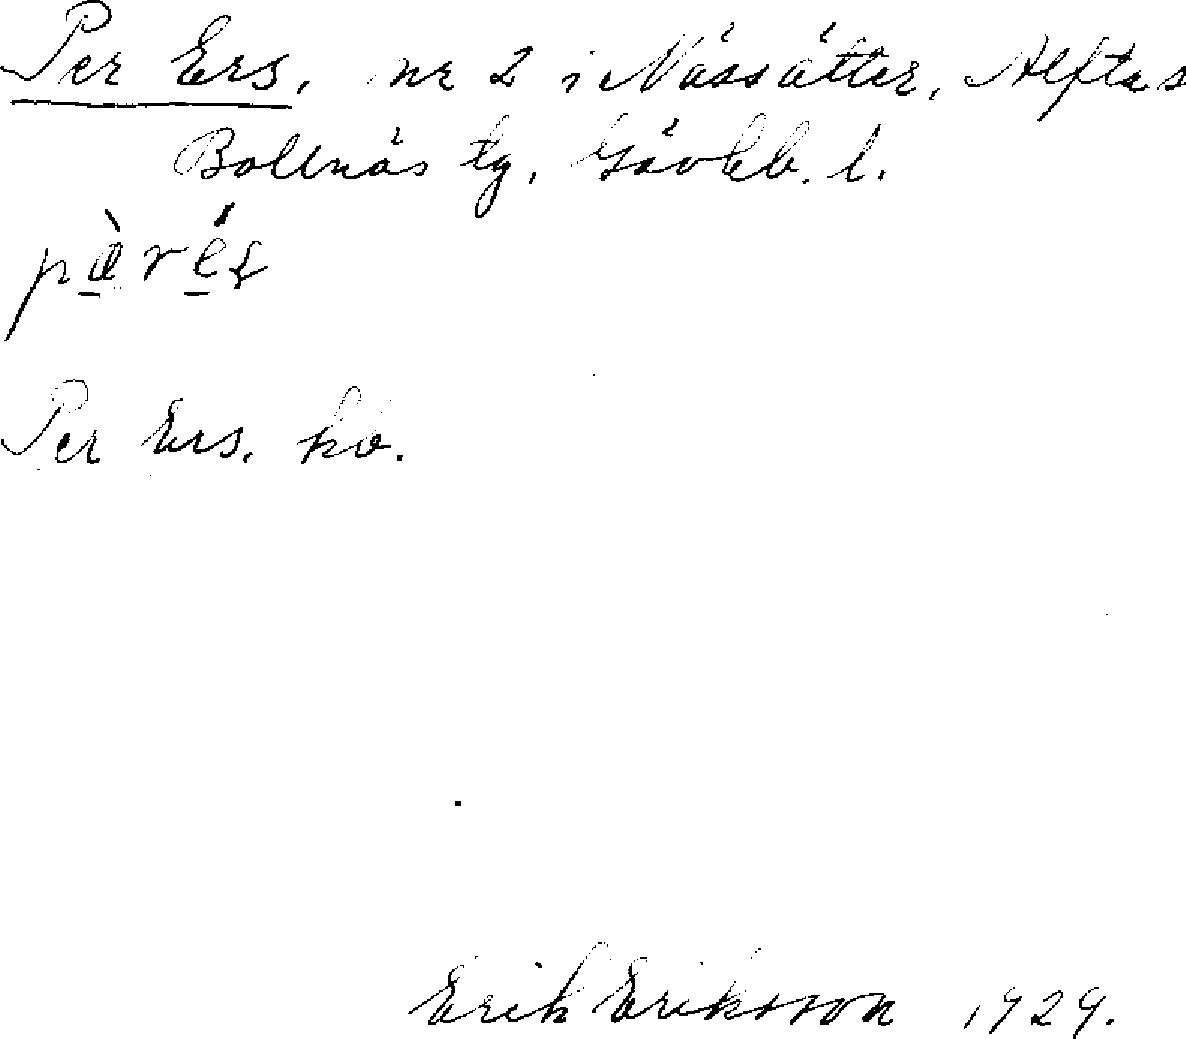 Per Ers, nr 2 i Nässätter, Alfta s
Bollnäs tg, Gävleb. l.
pæ̀rés
Per Ers. kb.
Erik Eriksson 1929.